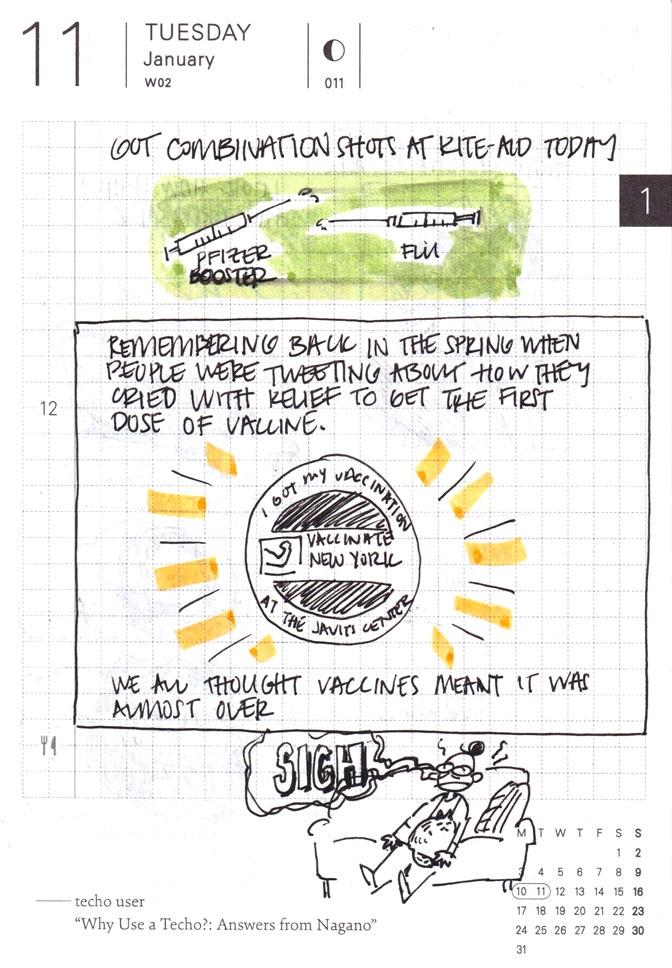 11
TUESDAY
January
W02
011
GOT COMBINATION SHOTS AT RITE-AID TODAY
1
PFIZER
BOOSTER
FLU
REMEMBERING BACK IN THE SPRING WHEN
PEOPLE WERE TWEETING ABOUT HOW THEY
CRIED WITH RELIEF TO GET THE FIRST
DOSE OF VACCINE.
12
I GOT MY VACCINATION
VACCINATE
NEW YORK
AT THE JAVITS CENTER
WE ALL THOUGHT VACCINES MEANT IT WAS
ALMOST OVER
SIGH
M T W T F S S
1 2
3 4 5 6 7 8 9
10 11 12 13 14 15 16
17 18 19 20 21 22 23
24 25 26 27 28 29 30
31
techo user
“Why Use a Techo?: Answers from Nagano”